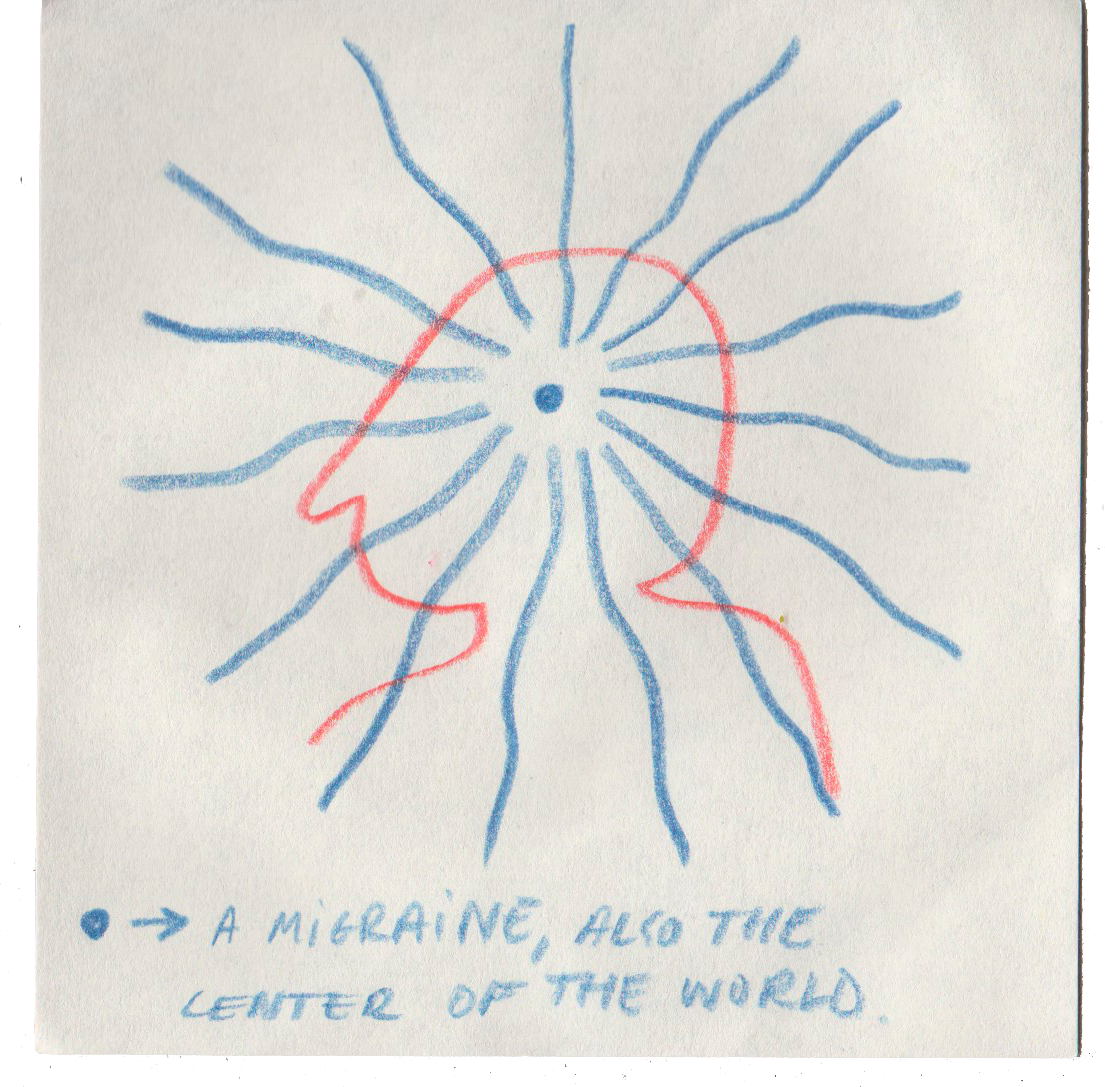 ● → A MiGRAiNE, ALSO THE
CENTER OF THE WORLD.